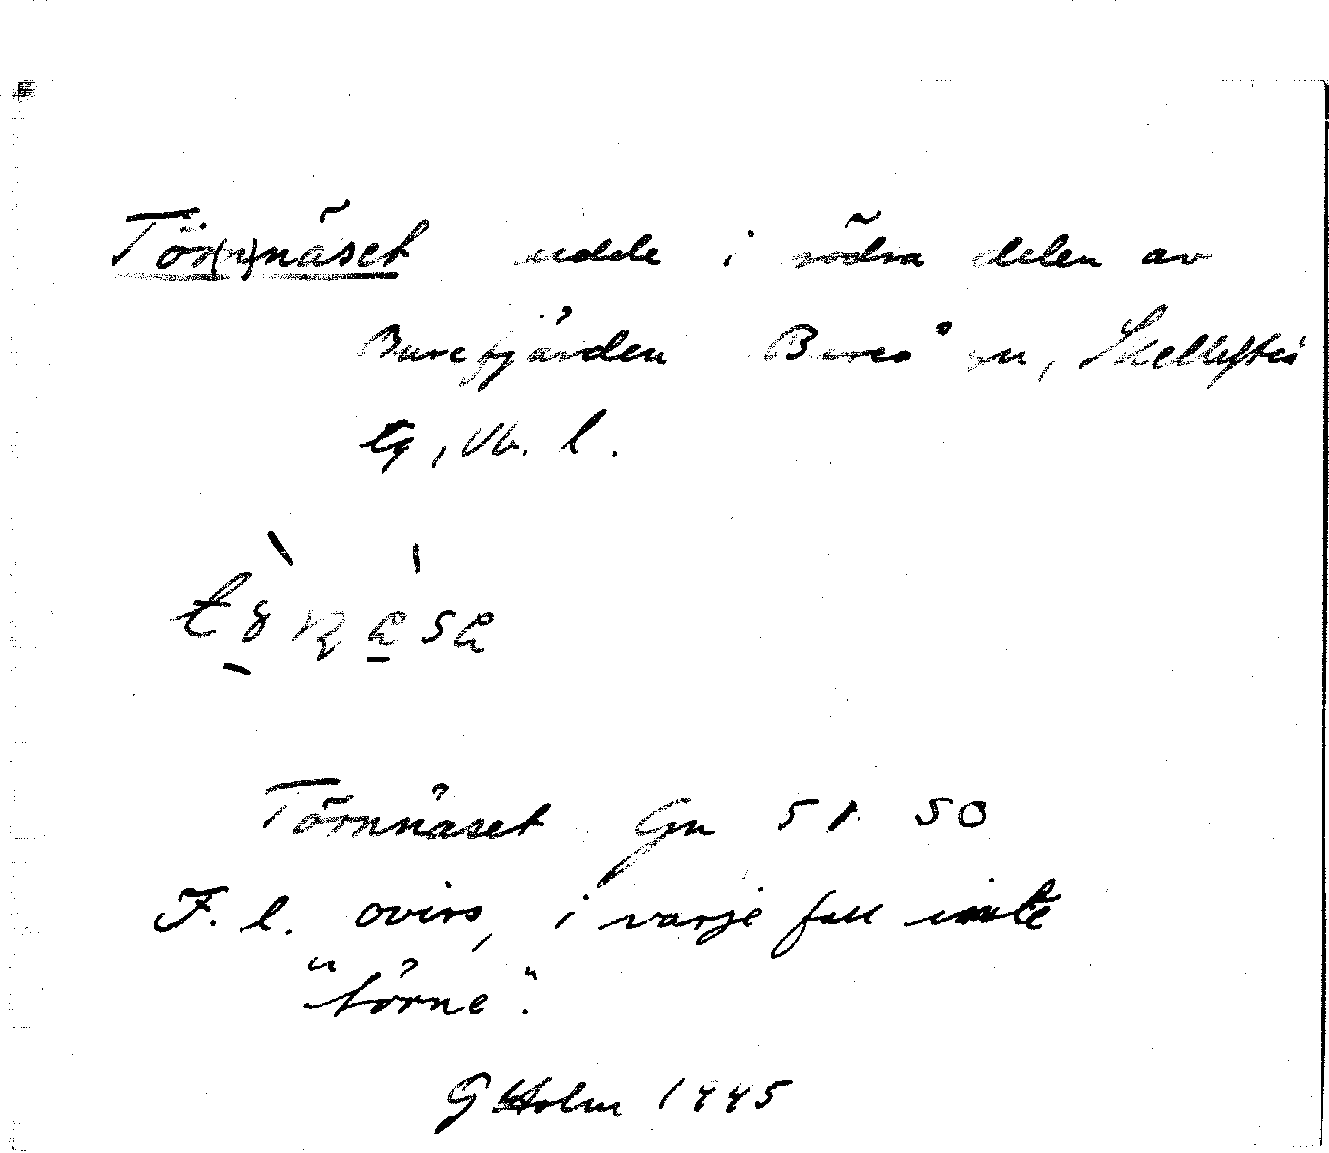 Tör(n)näset udde i södra delen av
Burefjärden Bureå sn, Skellefteå
tg, Vb. l.
Törnnäset Gn 51 50
F. l. oviss, i varje fall inte
"törne".
G Holm 1945